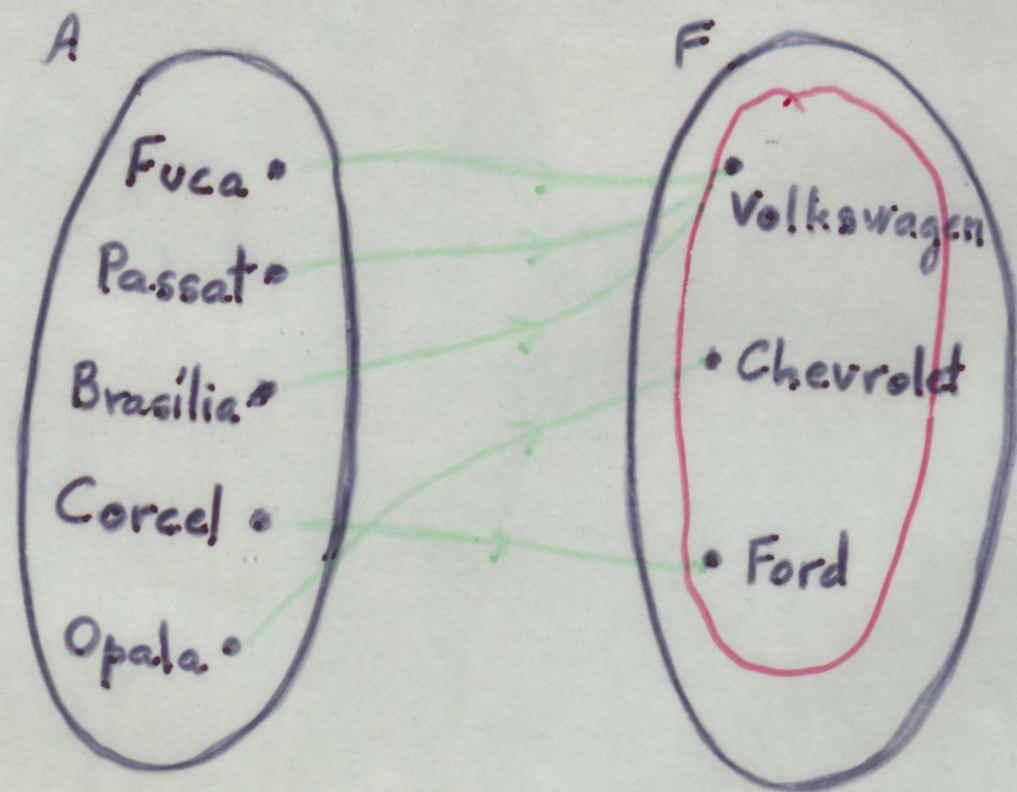 A
F
Fuca
Passat
Brasília
Corcel
Opala
Volkswagen
Chevrolet
Ford